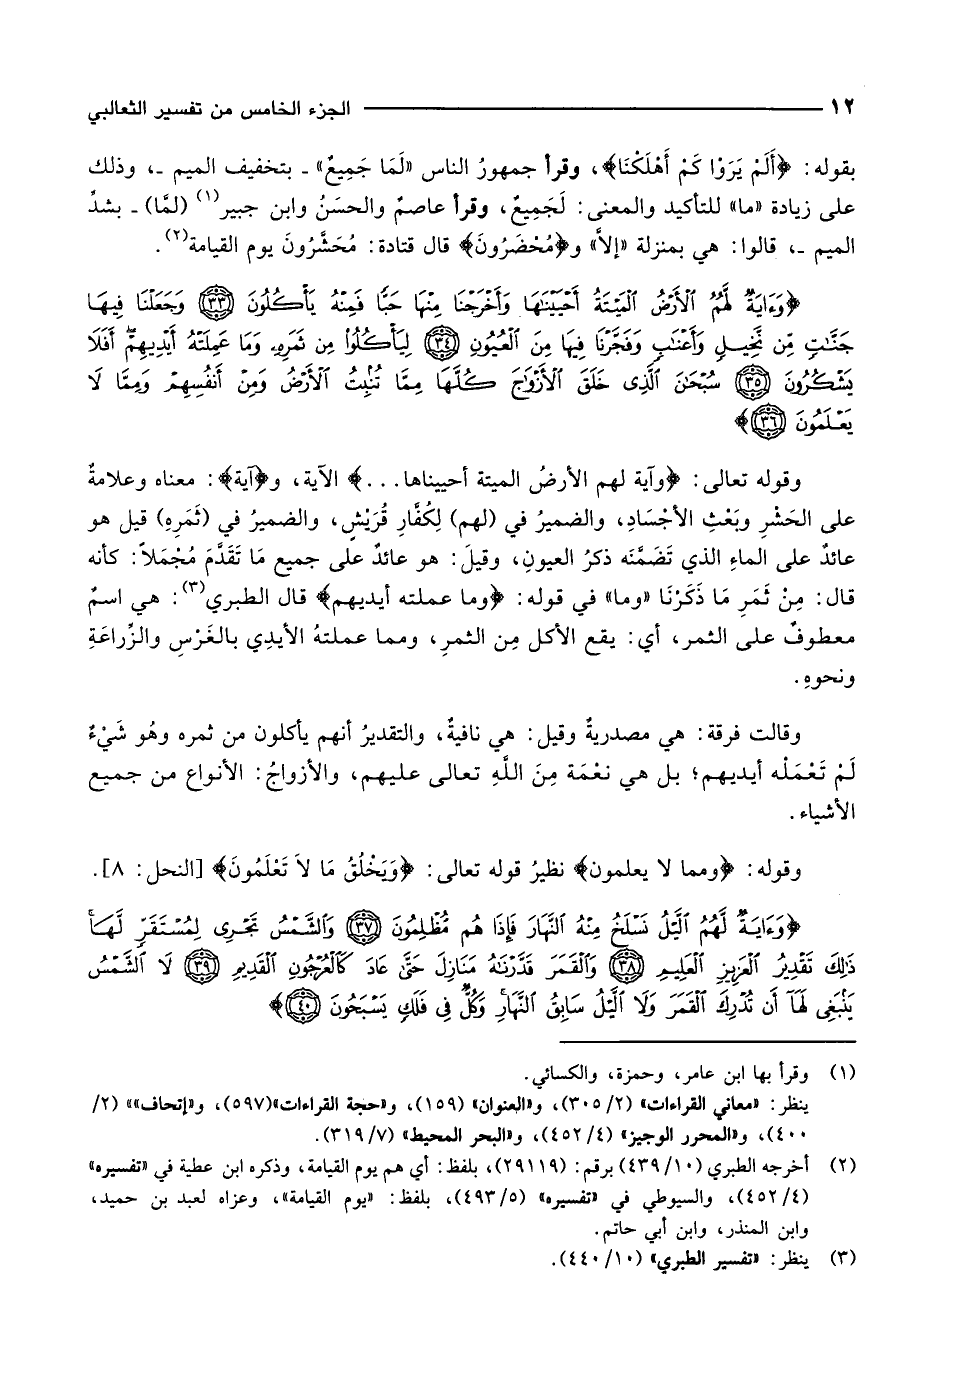 ١٢ ـــــــ الجزء الخامس من تفسير الثعالبي
بقوله: ﴿أَلَمْ يَرَوْا كَمْ أَهْلَكْنَا﴾، وقرأ جمهورُ الناس «لَمَا جَمِيعٌ» ـ بتخفيف الميم ـ، وذلك
على زيادة «ما» للتأكيد والمعنى: لَجَمِيعٌ، وقرأ عاصمٌ والحسَنُ وابن جبير(١) (لمَّا) ـ بشدِّ
الميم ـ، قالوا: هي بمنزلة «إلاَّ» و﴿مُحْضَرُونَ﴾ قال قتادة: مُحَشَّرُونَ يوم القيامة(٢).
﴿وَءَايَةٌ لَّهُمُ ٱلْأَرْضُ ٱلْمَيْتَةُ أَحْيَيْنَٰهَا وَأَخْرَجْنَا مِنْهَا حَبًّا فَمِنْهُ يَأْكُلُونَ ٣٣ وَجَعَلْنَا فِيهَا
جَنَّٰتٍ مِّن نَّخِيلٍ وَأَعْنَٰبٍ وَفَجَّرْنَا فِيهَا مِنَ ٱلْعُيُونِ ٣٤ لِيَأْكُلُوا۟ مِن ثَمَرِهِۦ وَمَا عَمِلَتْهُ أَيْدِيهِمْ ۖ أَفَلَا
يَشْكُرُونَ ٣٥ سُبْحَٰنَ ٱلَّذِى خَلَقَ ٱلْأَزْوَٰجَ كُلَّهَا مِمَّا تُنۢبِتُ ٱلْأَرْضُ وَمِنْ أَنفُسِهِمْ وَمِمَّا لَا
يَعْلَمُونَ ٣٦﴾
وقوله تعالى: ﴿وآية لهم الأرضُ الميتة أحييناها...﴾ الآية، و﴿آية﴾: معناه وعلامةٌ
على الحَشْرِ وبَعْثِ الأجْسَادِ، والضميرُ في (لهم) لِكُفَّارِ قُرَيْشٍ، والضميرُ في (ثَمَرِهِ) قيل هو
عائدٌ على الماءِ الذي تَضَمَّنَه ذكرُ العيونِ، وقيلَ: هو عائدٌ على جميع مَا تَقَدَّمَ مُجْمَلاً: كأنه
قال: مِنْ ثَمَرِ مَا ذَكَرْنَا «وما» في قوله: ﴿وما عملته أيديهم﴾ قال الطبري(٣): هي اسمٌ
معطوفٌ على الثمر، أي: يقع الأكل مِن الثمرِ، ومما عملتهُ الأيدِي بالغَرْسِ والزِّراعَةِ
ونحوهِ.
وقالت فرقة: هي مصدريةٌ وقيل: هي نافيةٌ، والتقديرُ أنهم يأكلون من ثمره وهُو شَيْءٌ
لَمْ تَعْمَلْه أيديهم؛ بل هي نعْمَة مِنَ اللَّهِ تعالى عليهم، والأزواجُ: الأنواع من جميع
الأشياء.
وقوله: ﴿ومما لا يعلمون﴾ نظيرُ قوله تعالى: ﴿وَيَخْلُقُ مَا لاَ تَعْلَمُونَ﴾ [النحل: ٨].
﴿وَءَايَةٌ لَّهُمُ ٱلَّيْلُ نَسْلَخُ مِنْهُ ٱلنَّهَارَ فَإِذَا هُم مُّظْلِمُونَ ٣٧ وَٱلشَّمْسُ تَجْرِى لِمُسْتَقَرٍّ لَّهَا ۚ
ذَٰلِكَ تَقْدِيرُ ٱلْعَزِيزِ ٱلْعَلِيمِ ٣٨ وَٱلْقَمَرَ قَدَّرْنَٰهُ مَنَازِلَ حَتَّىٰ عَادَ كَٱلْعُرْجُونِ ٱلْقَدِيمِ ٣٩ لَا ٱلشَّمْسُ
يَنۢبَغِى لَهَآ أَن تُدْرِكَ ٱلْقَمَرَ وَلَا ٱلَّيْلُ سَابِقُ ٱلنَّهَارِ ۚ وَكُلٌّ فِى فَلَكٍ يَسْبَحُونَ ٤٠﴾
(١) وقرأ بها ابن عامر، وحمزة، والكسائي.
ينظر: «معاني القراءات» (٣٠٥/٢)، و«العنوان» (١٥٩)، و«حجة القراءات»(٥٩٧)، و«إتحاف»» (٢/
٤٠٠)، و«المحرر الوجيز» (٤٥٢/٤)، و«البحر المحيط» (٣١٩/٧).
(٢) أخرجه الطبري (٤٣٩/١٠) برقم: (٢٩١١٩)، بلفظ: أي هم يوم القيامة، وذكره ابن عطية في «تفسيره»
(٤٥٢/٤)، والسيوطي في «تفسيره» (٤٩٣/٥)، بلفظ: «يوم القيامة»، وعزاه لعبد بن حميد،
وابن المنذر، وابن أبي حاتم.
(٣) ينظر: «تفسير الطبري» (٤٤٠/١٠).